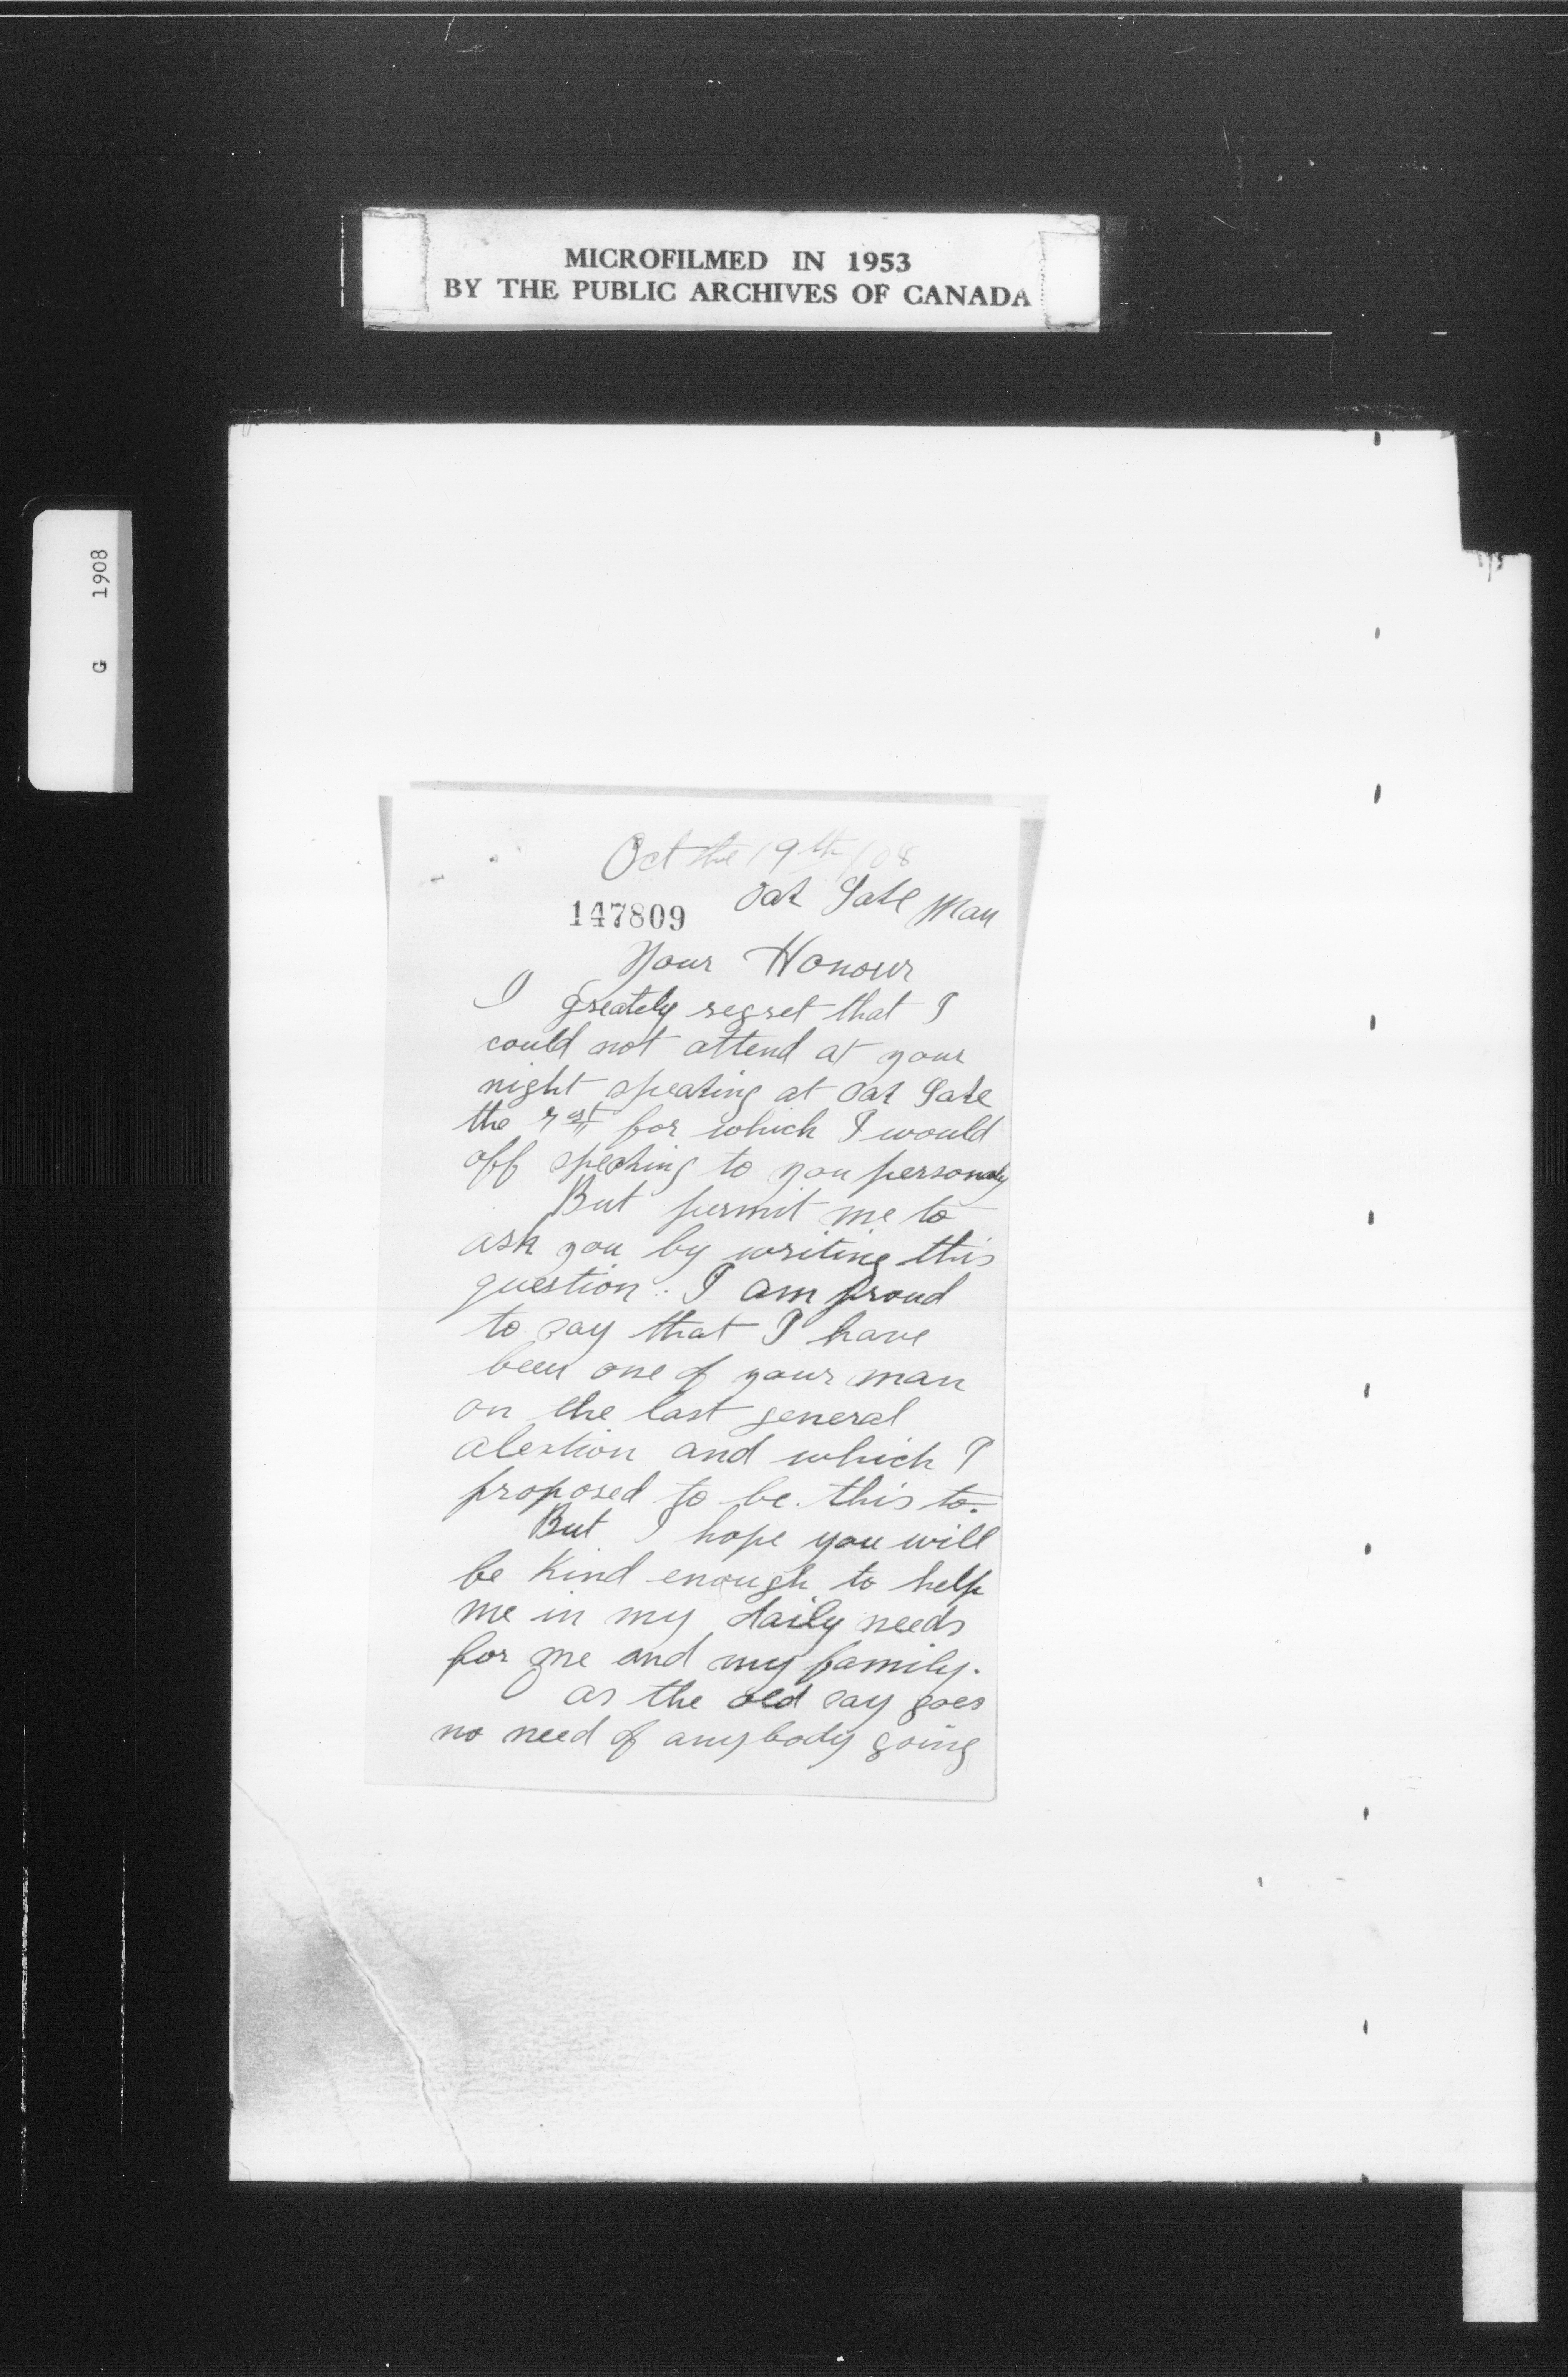 MICROFILMED IN 1953
BY THE PUBLIC ARCHIVES OF CANADA
G 1908
Oct the 19th / 08
Oak Lake Man
147809
Your Honour
I greately regret that I
could not attend at your
night speaking at Oak Lake
the for which I would
off speaking to you personaly
But permit me to
ask you by writing this
question. I am proud
to say that I have
been one of your man
on the last general
alextion and which I
proposed to be this to.
But I hope you will
be kind enough to help
me in my daily needs
for me and my family.
as the old say goes
no need of anybody going